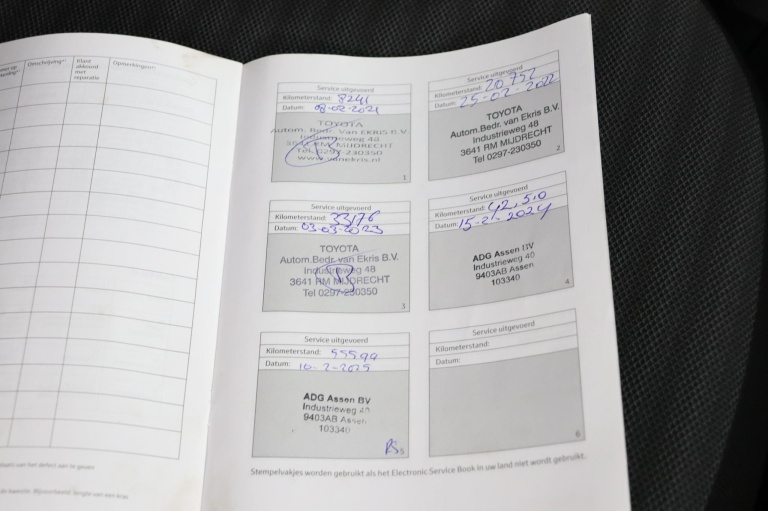 Omschrijving*¹
Klant
akkoord
met
reparatie
Opmerkingen*²
Service uitgevoerd
Kilometerstand: 8241
Datum: 08-02-2021
TOYOTA
Autom. Bedr. Van EKRIS B.V.
Industrieweg 48
3641 RM MIJDRECHT
Tel. 0297-230350
www.vanekris.nl
1
Service uitgevoerd
Kilometerstand: 20752
Datum: 25-02-2022
TOYOTA
Autom.Bedr. van Ekris B.V.
Industrieweg 48
3641 RM MIJDRECHT
Tel 0297-230350
2
Service uitgevoerd
Kilometerstand: 33176
Datum: 03-03-2023
TOYOTA
Autom.Bedr. van Ekris B.V.
Industrieweg 48
3641 RM MIJDRECHT
Tel 0297-230350
3
Service uitgevoerd
Kilometerstand:
Datum: 15-2-2024
ADG Assen BV
Industrieweg 40
9403AB Assen
103340
4
Service uitgevoerd
Kilometerstand: 55599
Datum: 10-2-2025
ADG Assen BV
Industrieweg
9403AB Assen
103340
5
Service uitgevoerd
Kilometerstand:
Datum:
6
Stempelvakjes worden gebruikt als het Electronic Service Book in uw land niet wordt gebruikt.
plaats van het defect aan te geven